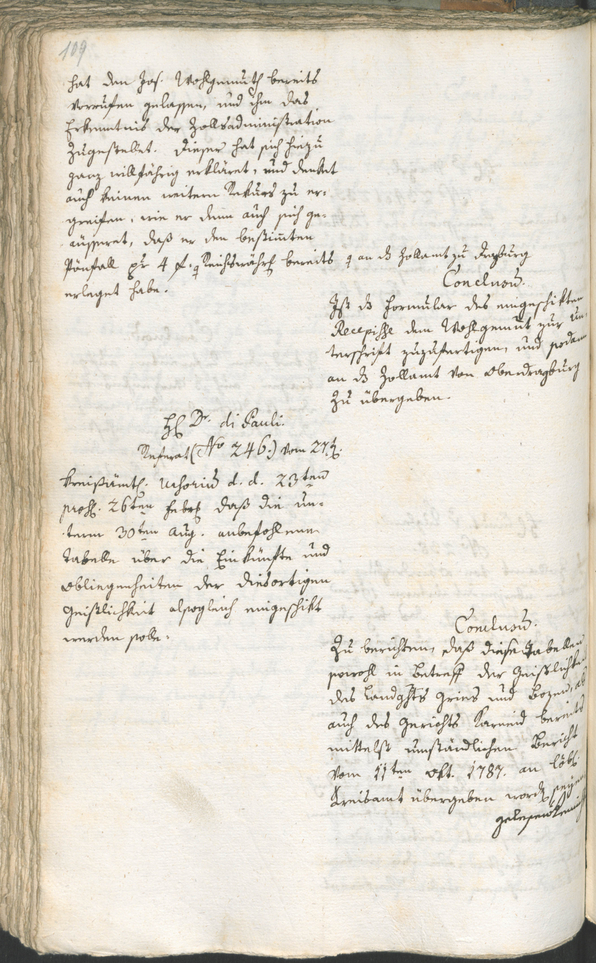 109
hat den Jos. Wohlgemuth bereits
vorrufen gelassen, und ihm das
Erkenntnis der Zollsadministration
zugestellet. Dieser hat sich hiezu
ganz willfährig erkläret, und denket
auch keinen weitern Rekurs zu er-
greifen, wie er denn auch sich ge-
äussert, daß er den bestimten
Pönfall pr 4 f. Reichswährg bereits
erleget habe.
an das Zollamt zu Drasburg
Conclusum.
Ist das Formular des eingeschikten
Recepisse dem Wohlgemut zur Un-
terschrift zuzufertigen, und sodann
an das Zollamt von Oberdrasburg
zu übergeben.
H. Dr. di Pauli.
Referat (No 246.) vom 27t.
Kreisämtl. d. d. 23ten
26ten Febr. daß die un-
term 30ten Aug. anbefohlene
Tabelle über die Einkünfte und
Obliegenheiten der diesortigen
Geistlichkeit alsogleich eingeschikt
werden solle.
Conclusum.
Zu berichten, daß diese Tabellen
sowohl in Betreff der Geistlichkeit
des Landghts Gries und Bozen, als
auch des Gerichts Karneid bereits
mittelst umständlichen Bericht
vom 11ten Okt. 1787. an löbl.
Kreisamt übergeben word. seyen